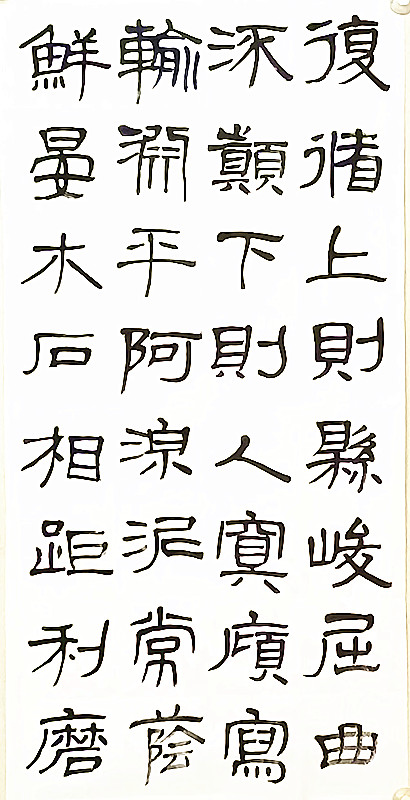 復循上則縣峻屈曲
流顛下則入冥廎寫
輸淵平阿湶泥常蔭
鮮晏木石相距利磨